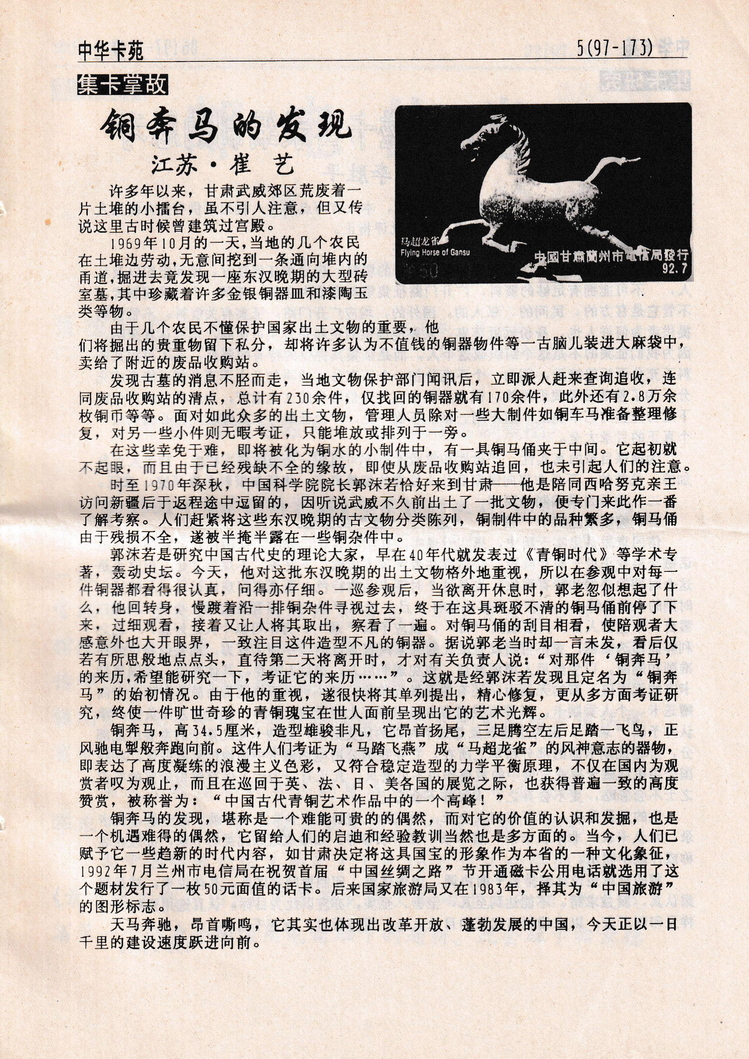 中华卡苑
5(97-173)
集卡掌故
铜奔马的发现
江苏·崔 艺
许多年以来，甘肃武威郊区荒废着一
片土堆的小擂台，虽不引人注意，但又传
说这里古时候曾建筑过宫殿。
1969年10月的一天，当地的几个农民
在土堆边劳动，无意间挖到一条通向堆内的
甬道，掘进去竟发现一座东汉晚期的大型砖
室墓，其中珍藏着许多金银铜器皿和漆陶玉
类等物。
马超龙雀
Flying Horse of Gansu
50
中國甘肅蘭州市電信局發行
92.7
由于几个农民不懂保护国家出土文物的重要，他
们将掘出的贵重物留下私分，却将许多认为不值钱的铜器物件等一古脑儿装进大麻袋中，
卖给了附近的废品收购站。
发现古墓的消息不胫而走，当地文物保护部门闻讯后，立即派人赶来查询追收，连
同废品收购站的清点，总计有230余件，仅找回的铜器就有170余件，此外还有2.8万余
枚铜币等等。面对如此众多的出土文物，管理人员除对一些大制件如铜车马准备整理修
复，对另一些小件则无暇考证，只能堆放或排列于一旁。
在这些幸免于难，即将被化为铜水的小制件中，有一具铜马俑夹于中间。它起初就
不起眼，而且由于已经残缺不全的缘故，即使从废品收购站追回，也未引起人们的注意。
时至1970年深秋，中国科学院院长郭沫若恰好来到甘肃——他是陪同西哈努克亲王
访问新疆后于返程途中逗留的，因听说武威不久前出土了一批文物，便专门来此作一番
了解考察。人们赶紧将这些东汉晚期的古文物分类陈列，铜制件中的品种繁多，铜马俑
由于残损不全，遂被半掩半露在一些铜杂件中。
郭沫若是研究中国古代史的理论大家，早在40年代就发表过《青铜时代》等学术专
著，轰动史坛。今天，他对这批东汉晚期的出土文物格外地重视，所以在参观中对每一
件铜器都看得很认真，问得亦仔细。一巡参观后，当欲离开休息时，郭老忽似想起了什
么，他回转身，慢踱着沿一排铜杂件寻视过去，终于在这具斑驳不清的铜马俑前停了下
来，过细观看，接着又让人将其取出，察看了一遍。对铜马俑的刮目相看，使陪观者大
感意外也大开眼界，一致注目这件造型不凡的铜器。据说郭老当时却一言未发，看后仅
若有所思般地点点头，直待第二天将离开时，才对有关负责人说：“对那件‘铜奔马’
的来历，希望能研究一下，考证它的来历……”。这就是经郭沫若发现且定名为“铜奔
马”的始初情况。由于他的重视，遂很快将其单列提出，精心修复，更从多方面考证研
究，终使一件旷世奇珍的青铜瑰宝在世人面前呈现出它的艺术光辉。
铜奔马，高34.5厘米，造型雄骏非凡，它昂首扬尾，三足腾空左后足踏一飞鸟，正
风驰电掣般奔跑向前。这件人们考证为“马踏飞燕”成“马超龙雀”的风神意志的器物，
即表达了高度凝练的浪漫主义色彩，又符合稳定造型的力学平衡原理，不仅在国内为观
赏者叹为观止，而且在巡回于英、法、日、美各国的展览之际，也获得普遍一致的高度
赞赏，被称誉为：“中国古代青铜艺术作品中的一个高峰！”
铜奔马的发现，堪称是一个难能可贵的的偶然，而对它的价值的认识和发掘，也是
一个机遇难得的偶然，它留给人们的启迪和经验教训当然也是多方面的。当今，人们已
赋予它一些趋新的时代内容，如甘肃决定将这具国宝的形象作为本省的一种文化象征，
1992年7月兰州市电信局在祝贺首届“中国丝绸之路”节开通磁卡公用电话就选用了这
个题材发行了一枚50元面值的话卡。后来国家旅游局又在1983年，择其为“中国旅游”
的图形标志。
天马奔驰，昂首嘶鸣，它其实也体现出改革开放、蓬勃发展的中国，今天正以一日
千里的建设速度跃进向前。